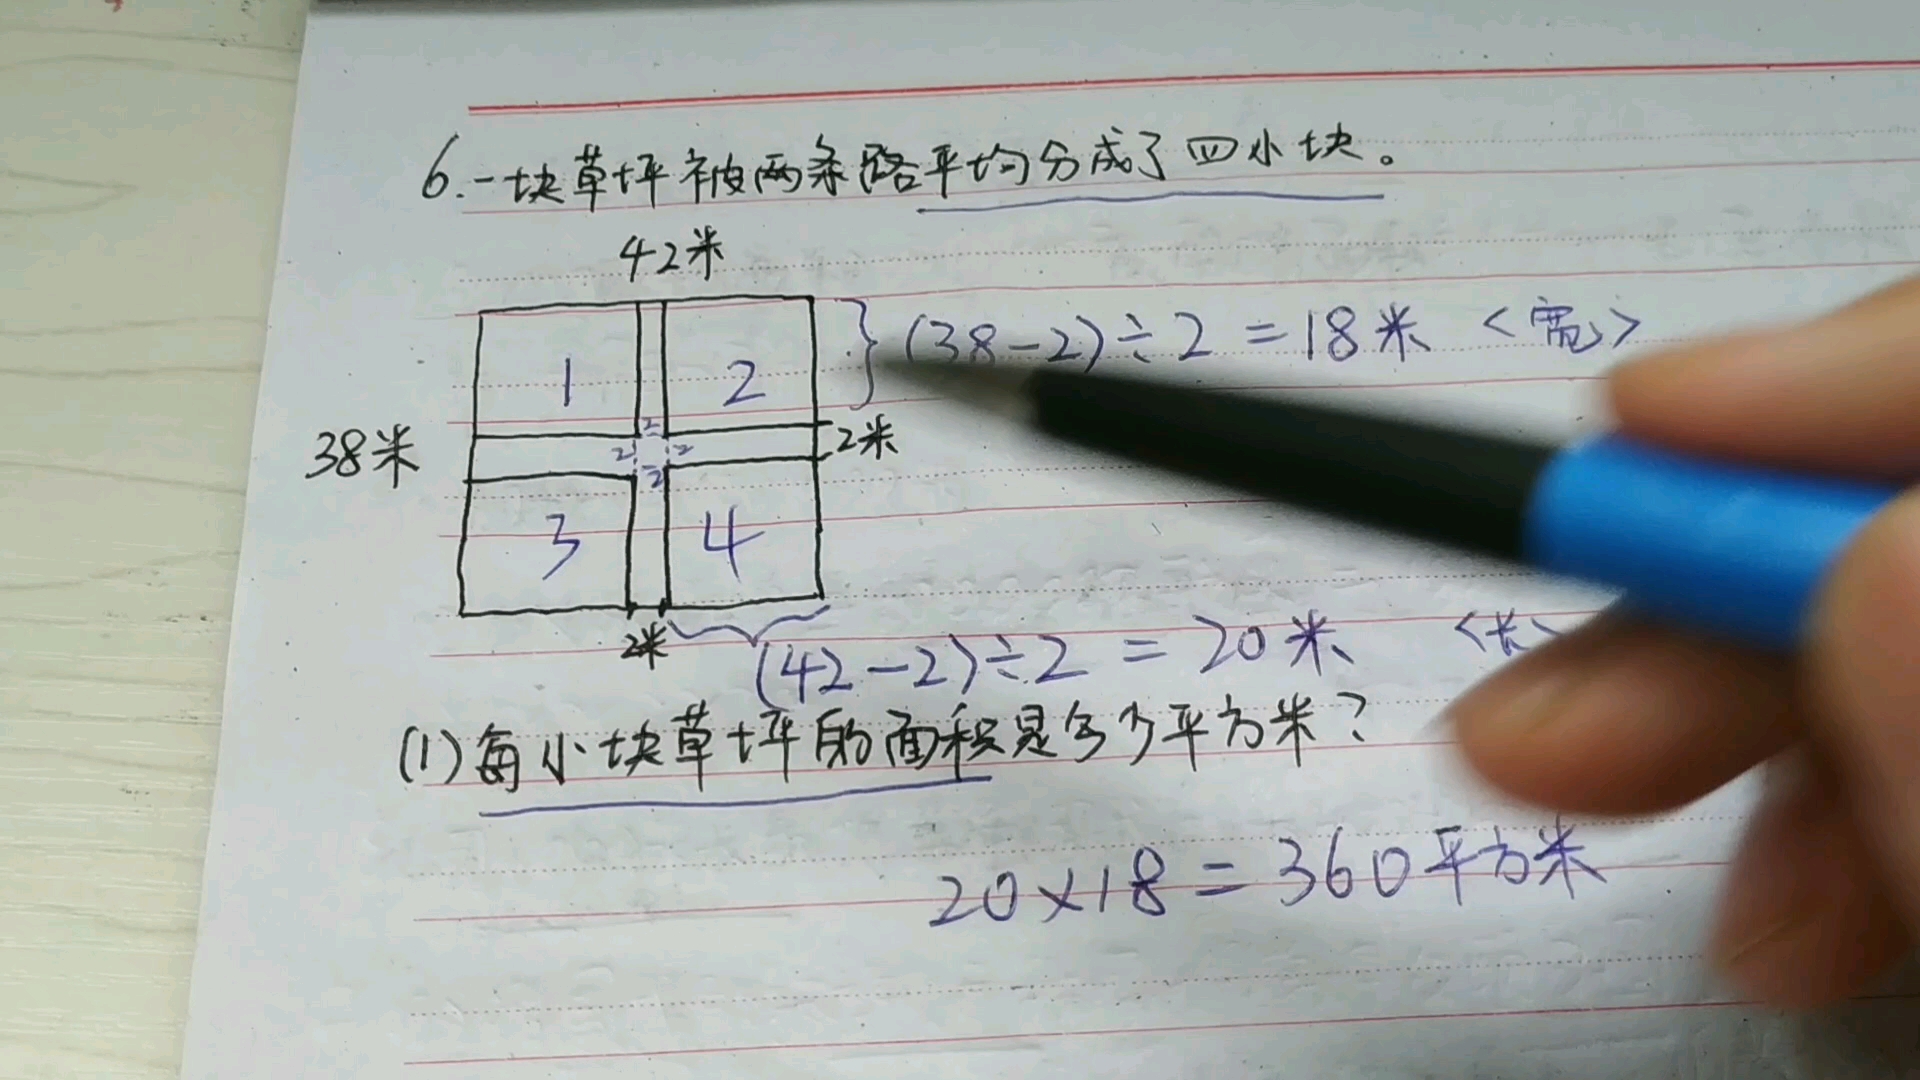 6.一块草坪被两条路平均分成了四小块。
42米
1 2 (38-2)÷2=18米 <宽>
2
38米 2 2 2米
2
3 4
2米 (42-2)÷2=20米 <长>
(1)每小块草坪的面积是多少平方米?
20×18=360平方米